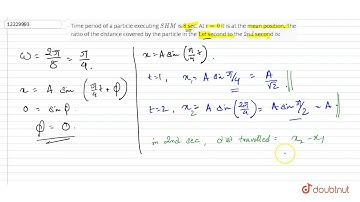 12229993
Time period of a particle executing SHM is 8 sec. At t = 0 it is at the mean position. The
ratio of the distance covered by the particle in the 1st second to the 2nd second is:
ω = 2π/8 = π/4.
x = A sin (π/4 t + ϕ)
0 = sin ϕ
ϕ = 0.
x = A sin (π/4 t)
t=1, x₁ = A sin π/4 = A/√2.
t=2, x₂ = A sin (2π/4) = A sin π/2 = A.
in 2nd sec, dist travelled = x₂ - x₁
doubtnut